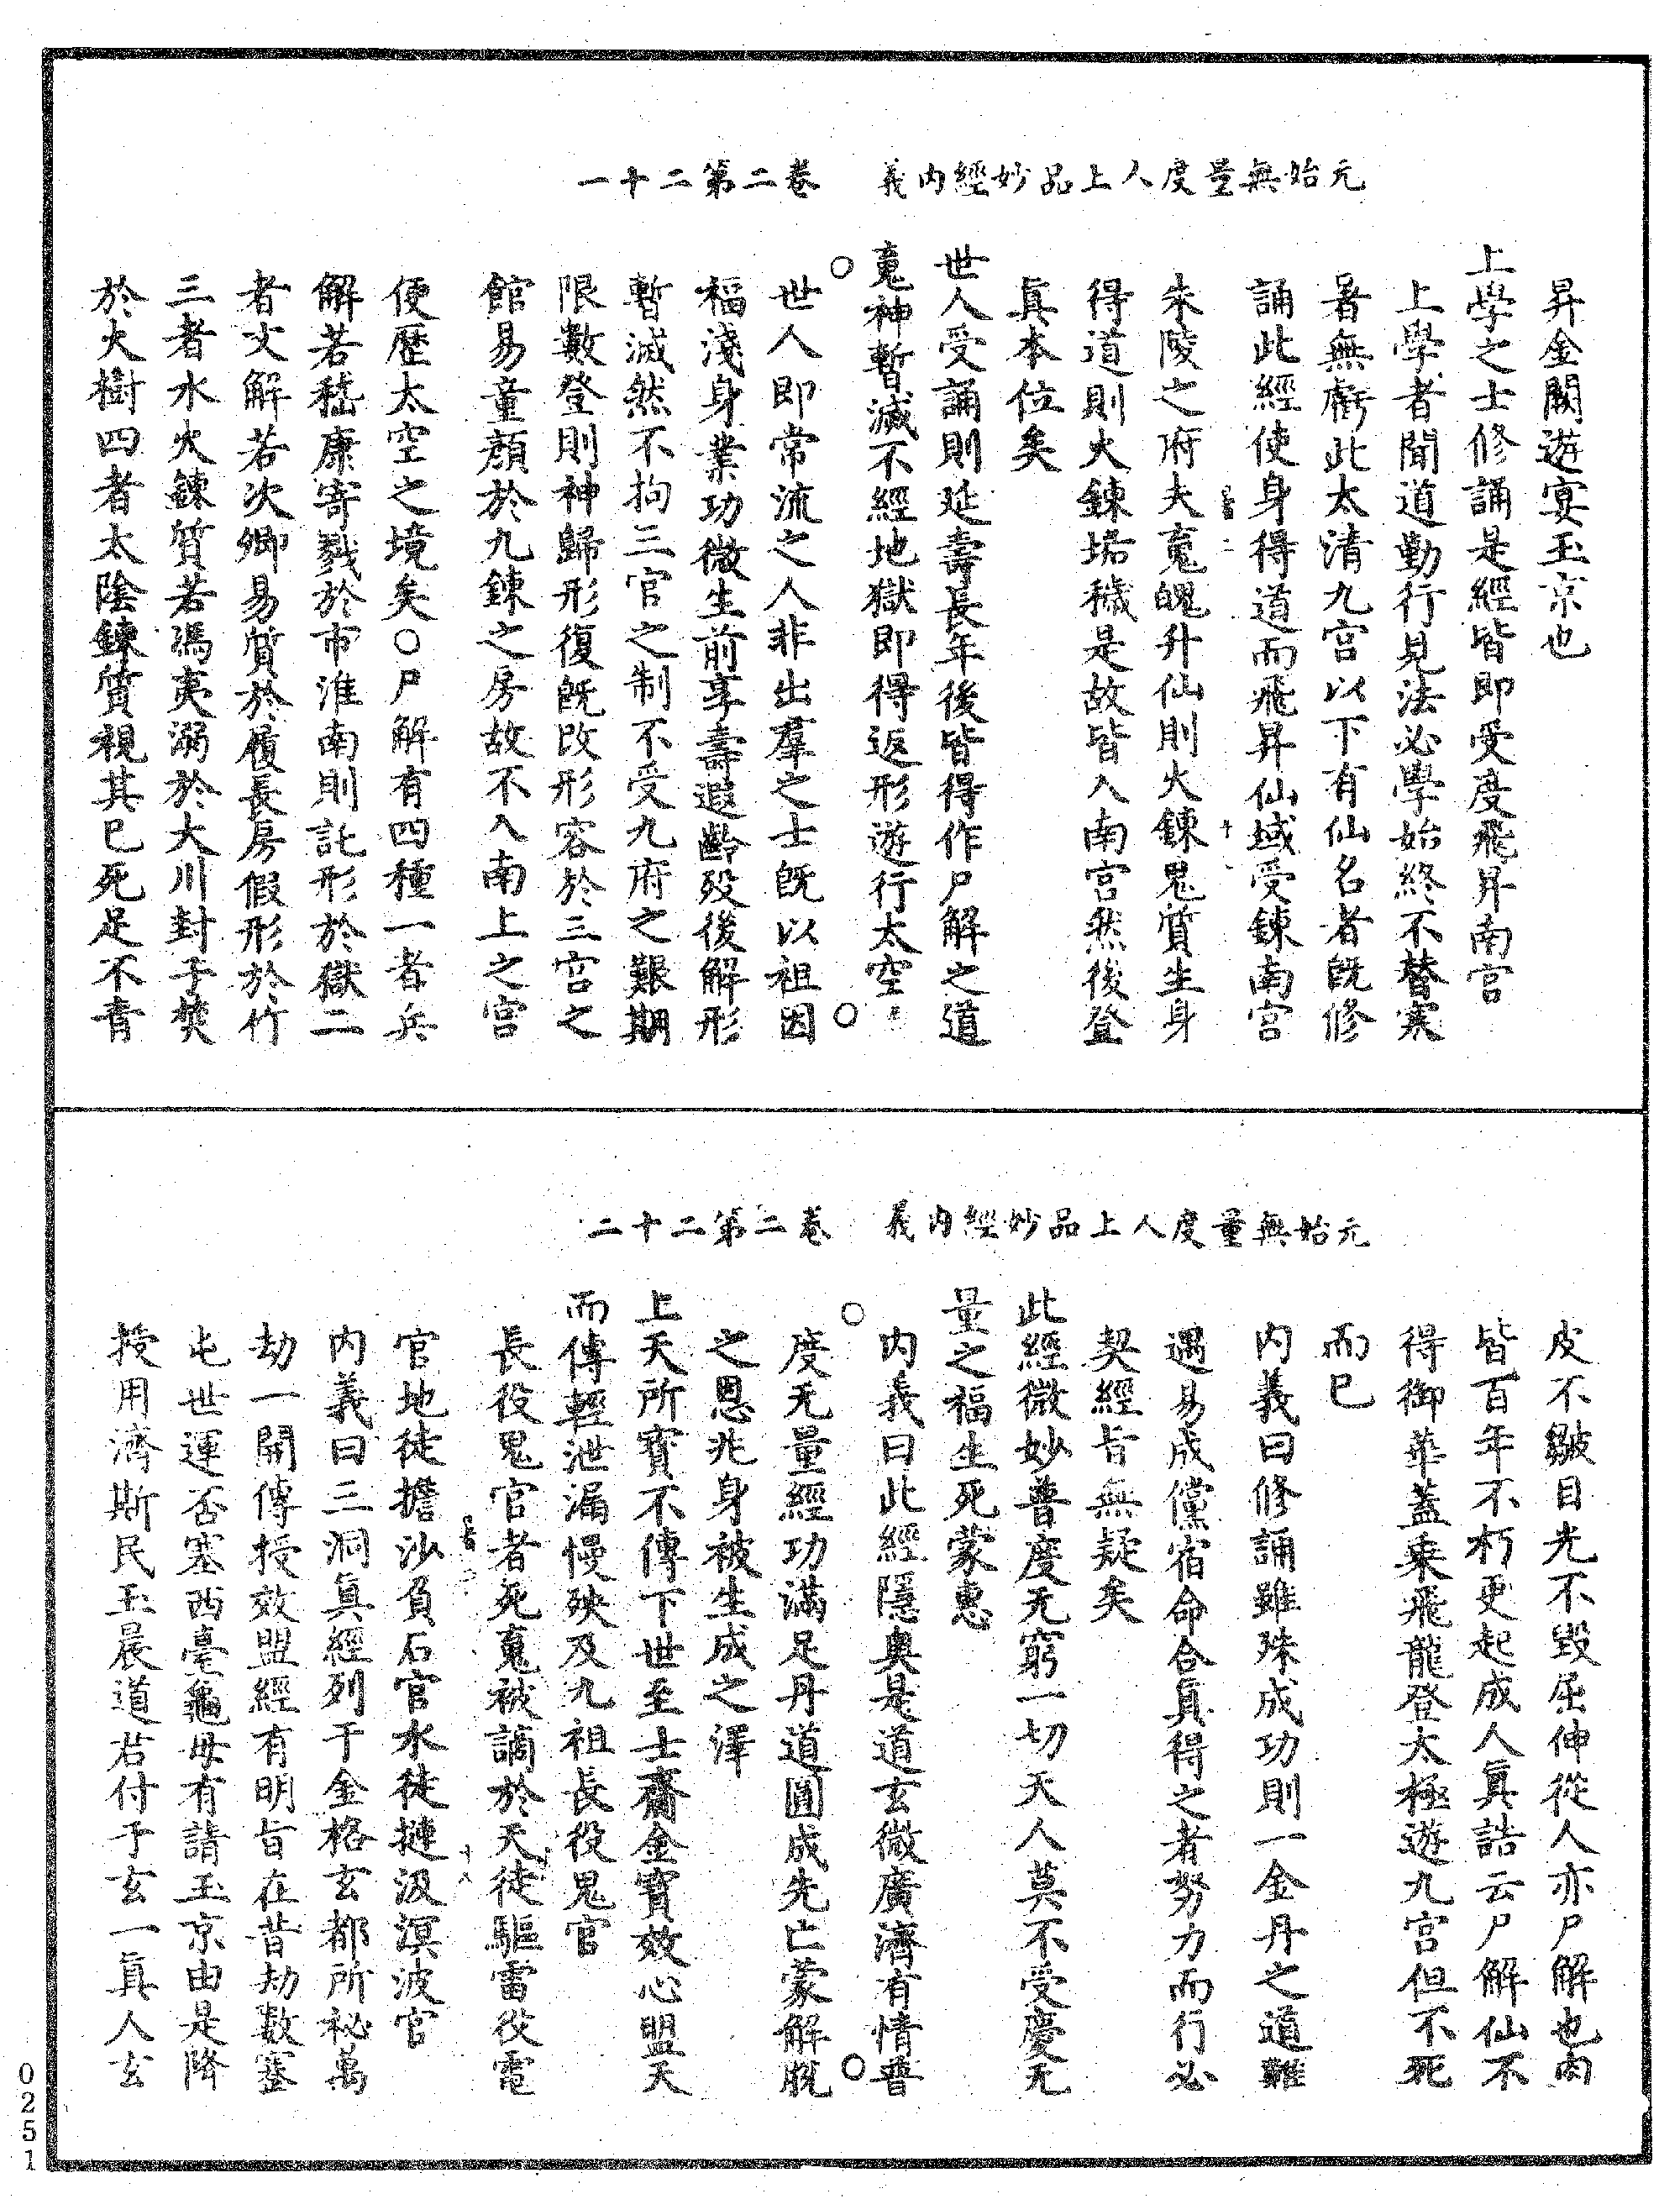 元始無量度人上品妙經內義　卷二第二十一
昇金闕遊宴玉京也
上學之士修誦是經皆即受度飛昇南宮
上學者聞道勤行見法必學始終不替寒
暑無虧此太清九宮以下有仙名者既修
誦此經使身得道而飛昇仙域受鍊南宮
朱陵之府夫䰟魄升仙則火鍊鬼質生身
得道則火鍊垢穢是故皆入南宮然後登
眞本位矣
世人受誦則延壽長年後皆得作尸解之道
䰟神暫滅不經地獄即得返形遊行太空
世人即常流之人非出羣之士既以祖因
福淺身業功微生前享壽遐齡歿後解形
暫滅然不拘三官之制不受九府之艱期
限數登則神歸形復既改形容於三宮之
館易童顏於九鍊之房故不入南上之宮
便歷太空之境矣○尸解有四種一者兵
解若嵇康寄戮於市淮南則託形於獄二
者文解若次卿易質於履長房假形於竹
三者水火鍊質若馮夷溺於大川封子焚
於火樹四者太陰鍊質視其已死足不青
元始無量度人上品妙經內義　卷二第二十二
皮不皺目光不毀屈伸從人亦尸解也肉
皆百年不朽更起成人眞誥云尸解仙不
得御華蓋乘飛龍登太極遊九宮但不死
而已
內義曰修誦雖殊成功則一金丹之道難
遇易成儻宿命合眞得之者努力而行必
契經旨無疑矣
此經微妙普度无窮一切天人莫不受慶无
量之福生死蒙惠
內義曰此經隱奧是道玄微廣濟有情普
度无量經功滿足丹道圓成先亡蒙解脫
之恩兆身被生成之澤
上天所寶不傳下世至士齎金寶效心盟天
而傳輕泄漏慢殃及九祖長役鬼官
長役鬼官者死䰟被謫於天徒驅雷役電
官地徒擔沙負石官水徒摙汲溟波官
內義曰三洞眞經列于金格玄都所祕萬
劫一開傳授效盟經有明旨在昔劫數蹇
屯世運否塞西臺龜母有請玉京由是降
授用濟斯民玉晨道君付于玄一眞人玄
0251